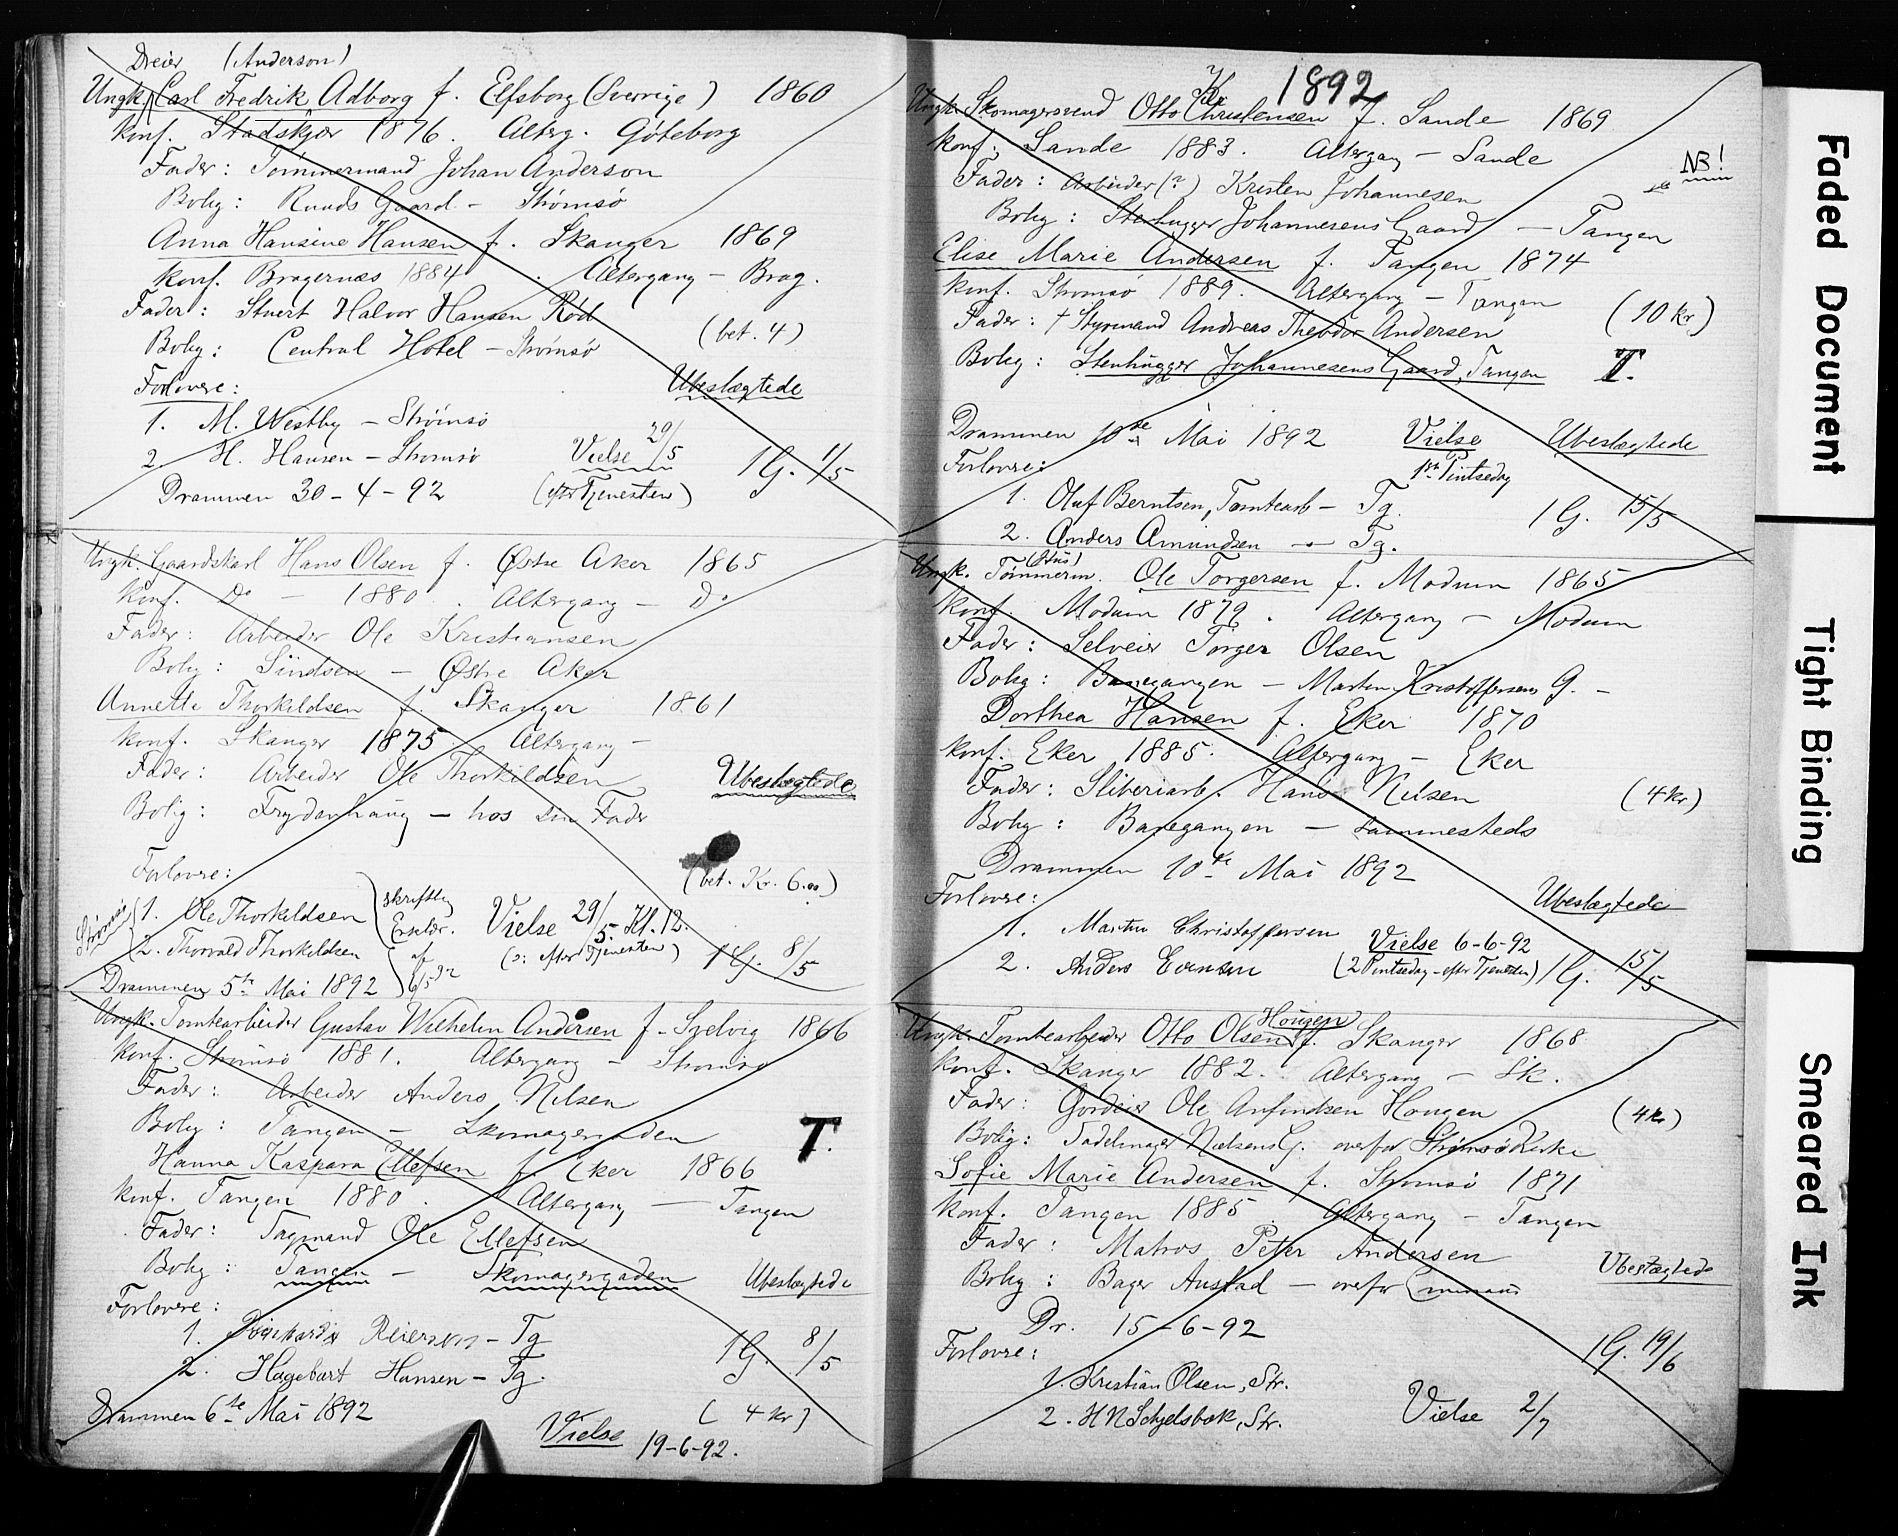 Dreier (Anderson)
Ungk. Carl Fredrik Adborg f. Elfsborg (Sverrige) 1860
Konf. Stadskjær 1876. Alterg. Göteborg
Fader: Tømmermand Johan Anderson
Bolig: Ruuds Gaard - Strømsø
Anna Hansine Hansen f. Skauger 1869
Konf. Bragernæs 1884. Altergang - Brag.
Fader: Stuert Halvor Hansen Rød
(bet. 4)
Bolig: Central Hotel - Strømsø
Forlovere: Ubeslægtede
1. M. Westby - Strømsø
2. H. Hansen - Strømsø Vielse 29/5 1 G. 1/5
Drammen 30-4-92 (efter Tjenesten)
Ungk. Gaardskarl Hans Olsen f. Østre Aker 1865
Konf. Do - 1880. Altergang - Do
Fader: Arbeider Ole Kristiansen
Bolig: Sindsen - Østre Aker
Annette Thorkildsen f. Skauger 1861
Konf. Skauger 1875 Altergang -
Fader: Arbeider Ole Thorkildsen Ubeslægtede
Bolig: Frydenhaug - hos sin Fader
Forlovere: (bet. Kr. 6.00)
Strømsø 1. Ole Thorkildsen skriftlig
2. Thorvald Thorkildsen Erklær. af 6/5 92 Vielse 29/5 - Kl. 12.
(o: efter Tjenesten) 1 G. 8/5
Drammen 5te Mai 1892
Ungk. Tomtearbeider Gustav Wilhelm Andersen f. Svelvig 1866
Konf. Strømsø 1881. Altergang - Strømsø
Fader: Arbeider Anders Nilsen
Bolig: Tangen - Skomagergaden T.
Hanna Kaspara Ellefsen f. Eker 1866
Konf. Tangen 1880. Altergang - Tangen
Fader: Sagmand Ole Ellefsen
Bolig: Tangen - Skomagergaden Ubeslægtede
Forlovere:
1. Reiersen - Tg
2. Hagebart Hansen - Tg. 1 G. 8/5
Drammen 6te Mai 1892 (4 kr)
Vielse 19-6-92.
1892
Ungk. Skomagersvend Otto Christensen f. Sande 1869
Konf. Sande 1883. Altergang - Sande NB!
Fader: Arbeider (?) Kristen Johannesen
Bolig: Stenhugger Johannesens Gaard - Tangen
Elise Marie Andersen f. Tangen 1874
Konf. Strømsø 1889. Altergang - Tangen (10 kr)
Fader: † Styrmand Andreas Theodor Andersen
Bolig: Stenhugger Johannesens Gaard, Tangen T.
Drammen 10de Mai 1892 Vielse Ubeslægtede
Forlovere: 1ste Pintsedag
1. Oluf Berntsen, Tomtearb - Tg.
2. Anders Amundsen - Tg. 1 G. 15/5
(Hus)
Ungk. Tømmerm. Ole Torgersen f. Modum 1865
Konf. Modum 1879. Altergang - Modum
Fader: Selveier Torger Olsen
Bolig: Banegangen - Martin Kristoffersens G. -
Dorthea Hansen f. Eker 1870
Konf. Eker 1885. Altergang - Eker
Fader: Sliberiarb. Hans Nilsen (4 kr)
Bolig: Banegangen - sammesteds
Drammen 10de Mai 1892
Forlovere: Ubeslægtede
1. Martin Christoffersen Vielse 6-6-92
2. Anders Evensen (2 Pintsedag - efter Tjenesten) 1 G. 15/5
Hougen
Ungk. Tomtearbeider Otto Olsen f. Skauger 1868
Konf. Skauger 1882. Altergang - Sk.
Fader: Gordeier Ole Anfindsen Hougen (4 kr)
Bolig: Sadelmager Nielsens G. overfor Strømsø Kirke
Sofie Marie Andersen f. Strømsø 1871
Konf. Tangen 1885. Altergang - Tangen
Fader: Matros Peter Andersen
Ubeslægtede
Bolig: Bager Austad - overfor
Dr. 15-6-92
Forlovere: 1 G. 19/6
1. Kristian Olsen, Str.
2. H N Schjelsbæk, Str. Vielse 2/7
Faded Document
Tight Binding
Smeared Ink